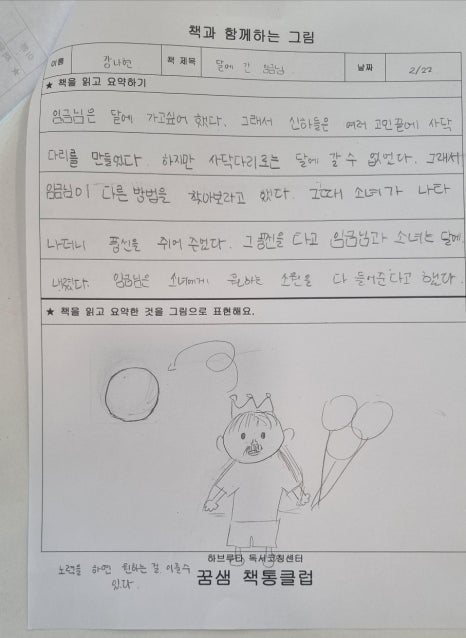 책과 함께하는 그림
이름 강나현 책 제목 달에 간 임금님. 날짜 2/22
★ 책을 읽고 요약하기
임금님은 달에 가고싶어 했다. 그래서 신하들은 여러 고민끝에 사닥
다리를 만들었다. 하지만 사닥다리로는 달에 갈 수 없었다. 그래서
임금님이 다른 방법을 찾아보라고 했다. 그때 소녀가 나타
나더니 풍선을 쥐어 준었다. 그 풍선을 타고 임금님과 소녀는 달에
내렸다. 임금님은 소녀에게 원하는 소원을 다 들어준다고 했다.
★ 책을 읽고 요약한 것을 그림으로 표현해요.
노력을 하면 원하는 걸 이룰수
있다.
하브루타 독서코칭센터
꿈샘 책통클럽